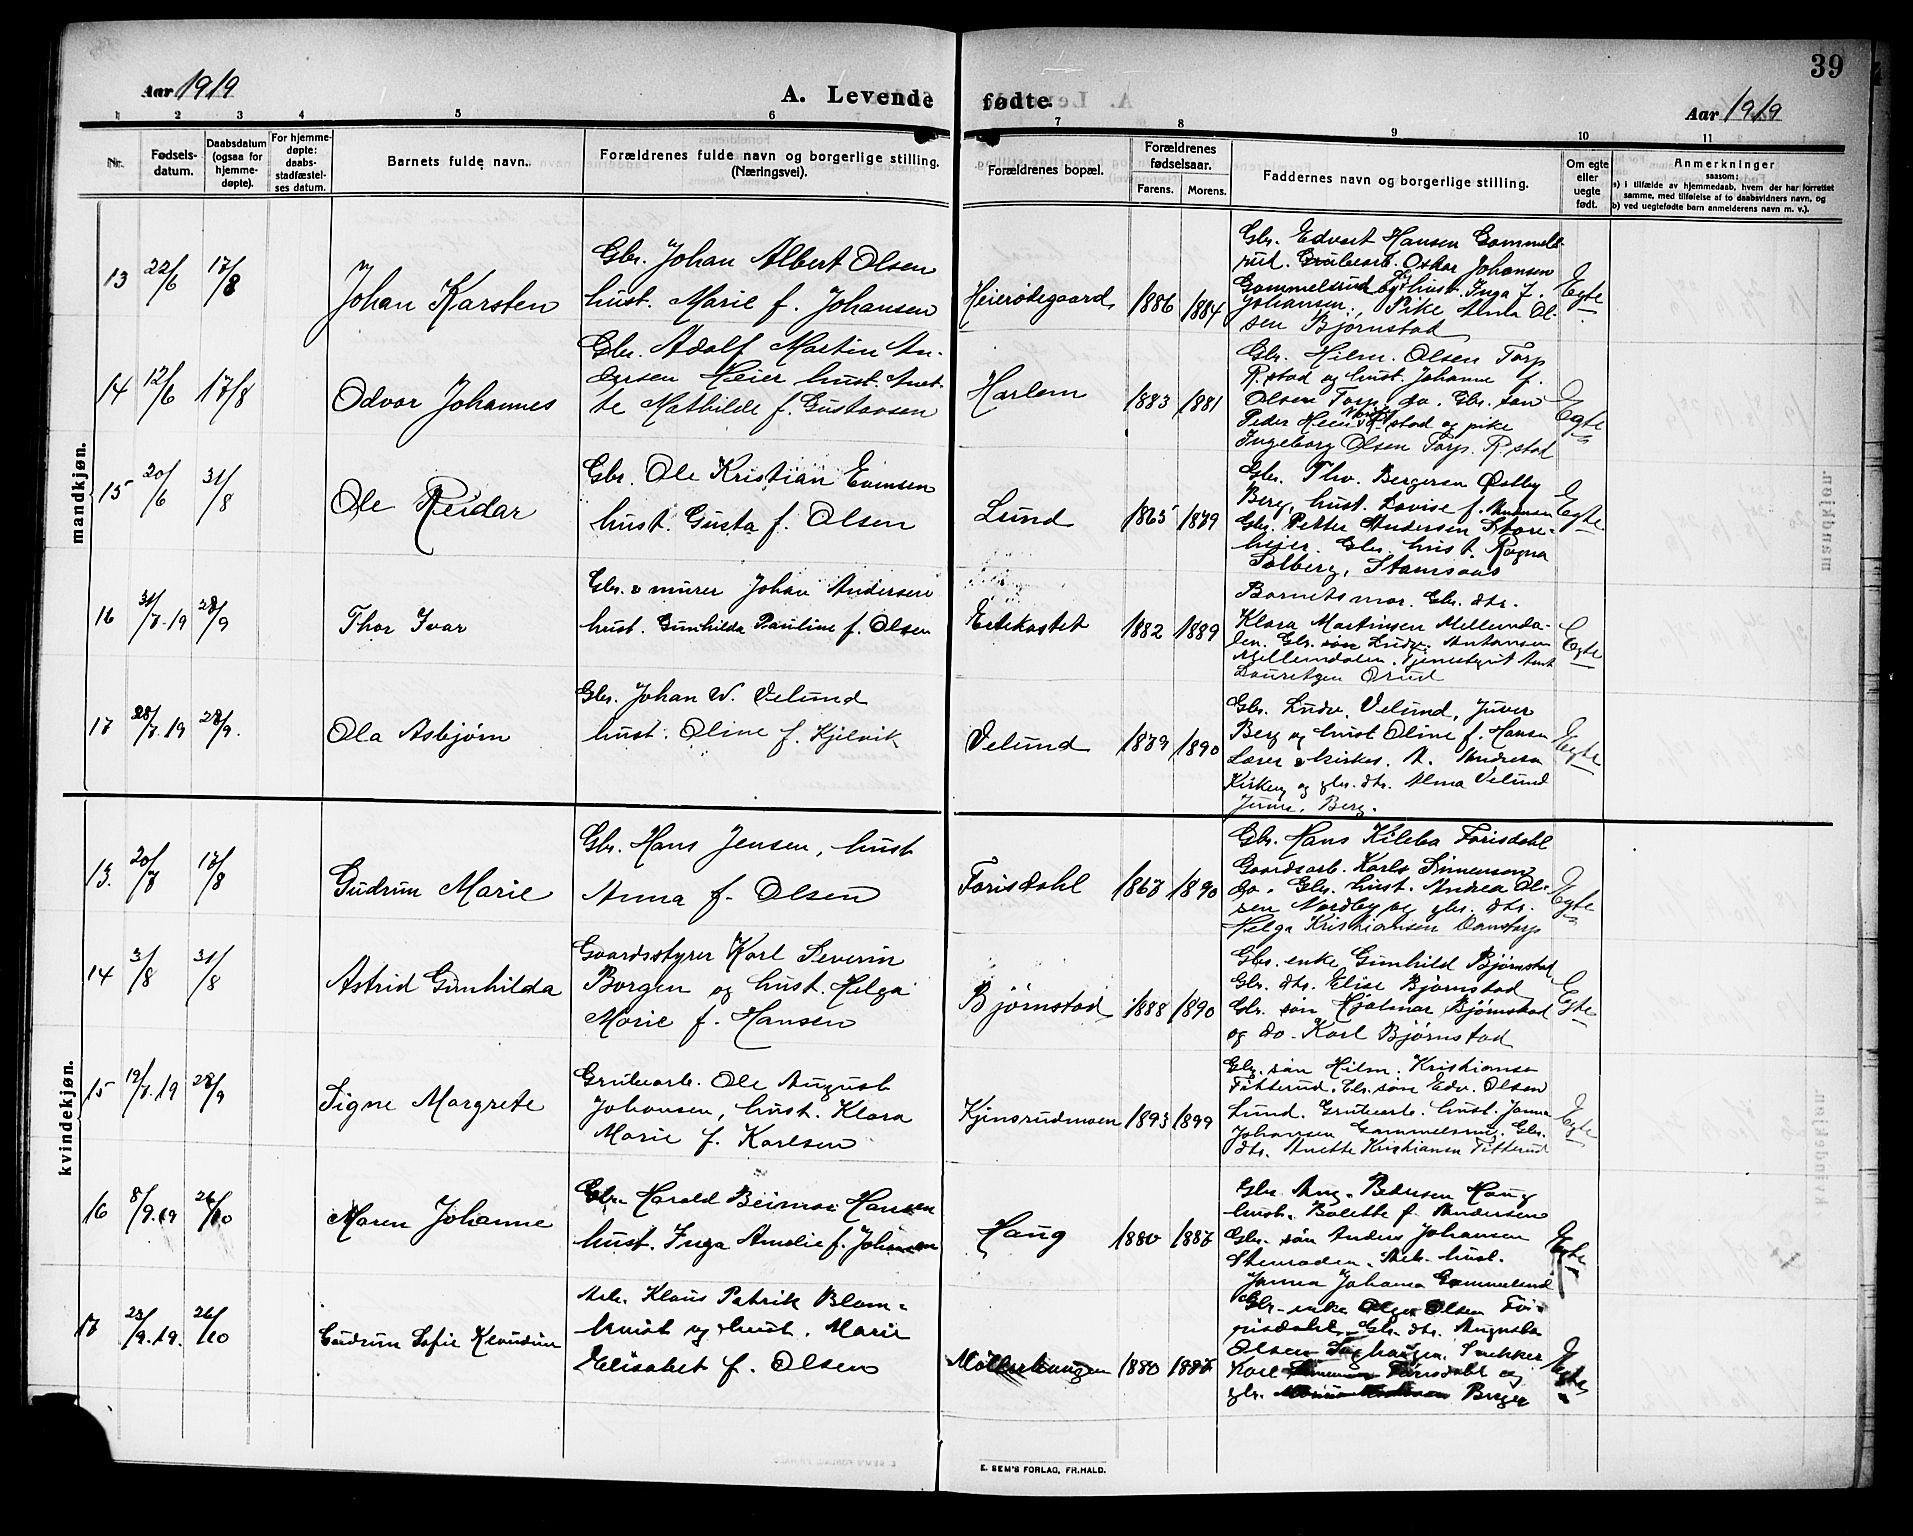 39
Aar 1919
A. Levende fødte.
Aar 1919
1 2 3 4 5 6 7 8 9 10 11
Nr.
Fødsels-
datum.
Daabsdatum
(ogsaa for
hjemme-
døpte).
For hjemme-
døpte:
daabs-
stadfæstel-
ses datum.
Barnets fulde navn.
Forældrenes fulde navn og borgerlige stilling.
(Næringsvei).
Forældrenes bopæl.
Forældrenes
fødselsaar.
Farens. Morens.
Faddernes navn og borgerlige stilling.
Om egte
eller
uegte
født.
Anmerkninger
saasom:
a) i tilfælde av hjemmedaab, hvem der har forrettet
samme, med tilføielse af to daabsvidners navn, og
b) ved uegtefødte barn anmelderens navn m. v.).
mandkjøn.
13 22/6 17/8
Johan Karsten
Gbr. Johan Albert Olsen
hust. Marie f. Johansen
Heierødegaard 1886 1884
Gbr. Edvart Hansen Gammels-
rud. Grubearb. Oskar Johansen
Gammelsrud Gbr hust. Inga f.
Johansen, Pike Alma Ol-
sen Bjørnstad
Egte
14 12/6 17/8
Odvar Johannes
Gbr. Adolf Martin An-
dersen Heier hust. Anet-
te Mathilde f. Gustavsen
Harlem 1883 1881
Gbr. Hilm. Olsen Torp
R.stad og hust. Johanne f.
Olsen Torp. do. Gbr. søn
Peder R.stad og pike
Ingeborg Olsen Torp. R.stad
Egte
15 20/6 31/8
Ole Reidar
Gbr. Ole Kristian Evensen
hust. Gusta f. Olsen
Lund 1865 1879
Gbr. Thv. Bergersen Østby
Berg, hust. Lovise f.
Gbr. Petter Andersen Store-
heier. Gbr. hust. Ragna
Solberg,
Egte
16 31/7.19 28/9
Thor Ivar
Gbr. & murer Johan Andersen
hust. Gunhilda Pauline f. Olsen
Ertekastet 1882 1889
Barnets mor. Gbr. dtr.
Klara Martinsen Mellemda-
len. Gbr. søn Ludv. Antonsen
Mellemdalen. Tjenestegut
Lauritzen
Egte
17 28/7.19 28/9.
Ola Asbjørn
Gbr. Johan W. Velund
hust. Oline f. Kjelvik
Velund 1879 1890
Gbr. Ludv. Velund,
Berg og hust Oline f. Hansen
Lærer & kirkes. A. Andresen
Kirkeng og gbr. dtr. Alma Velund
Berg.
Egte
kvindekjøn.
13. 20/7 17/8
Gudrun Marie
Gbr. Hans Jensen, hust
Anna f. Olsen
Torisdahl 1867 1890
Gbr. Hans Kilebu Torisdahl
Gaardsarb. Karl Simensen
do. Gbr. hust. Andrea Ol-
sen Nordby og gbr. dtr.
Helga Kristiansen Damtorp
Egte
14 3/8 31/8
Astrid Gunhilda
Gaardsstyrer Karl Severin
Borgen og hust. Helga
Marie f. Hansen
Bjørnstad 1888 1890
Gbr. enke Gunhild Bjørnstad
Gbr. dtr. Elise Bjørnstad
Gbr. søn Hjalmar Bjørnstad
og do. Karl Bjørnstad
Egte
15 19/7.19 28/9
Signe Margrete
Grubearb. Ole August
Johansen, hust. Klara
Marie f. Karlsen
Kjensrudmoen 1893 1899
Gbr. søn Hilm. Kristiansen
Titterud. Gbr. søn Edv. Olsen
Lund. Grubearb. hust. Janna
Johansen Gammelsrud. Gbr.
dtr. Anette Kristiansen Titterud
Egte
16 8/9.19 26/10
Maren Johanne
Gbr. Harald Hansen
hust. Inga Amelie f. Johansen
Haug 1880 1887
Gbr. Aug. Pedersen Haug
hust. Bolette f. Andersen
Gbr. søn Anders Johansen
Stenroden. Arb. hust.
Janna Johansen Gammelsrud
Egte
17 23/9.19. 26/10
Gudrun Sofie Klaudine
Arb. Klaus Patrik Blom-
kvist og hust. Marie
Elisabet f. Olsen
Møllerhaugen 1880 1887
Gbr. enke Olga Olsen Tor-
risdahl. Gbr. dtr. Augusta
Olsen Snekker
Karl Torisdahl og
gbr. Berger
Egte
E. SEM'S FORLAG, FR.HALD.